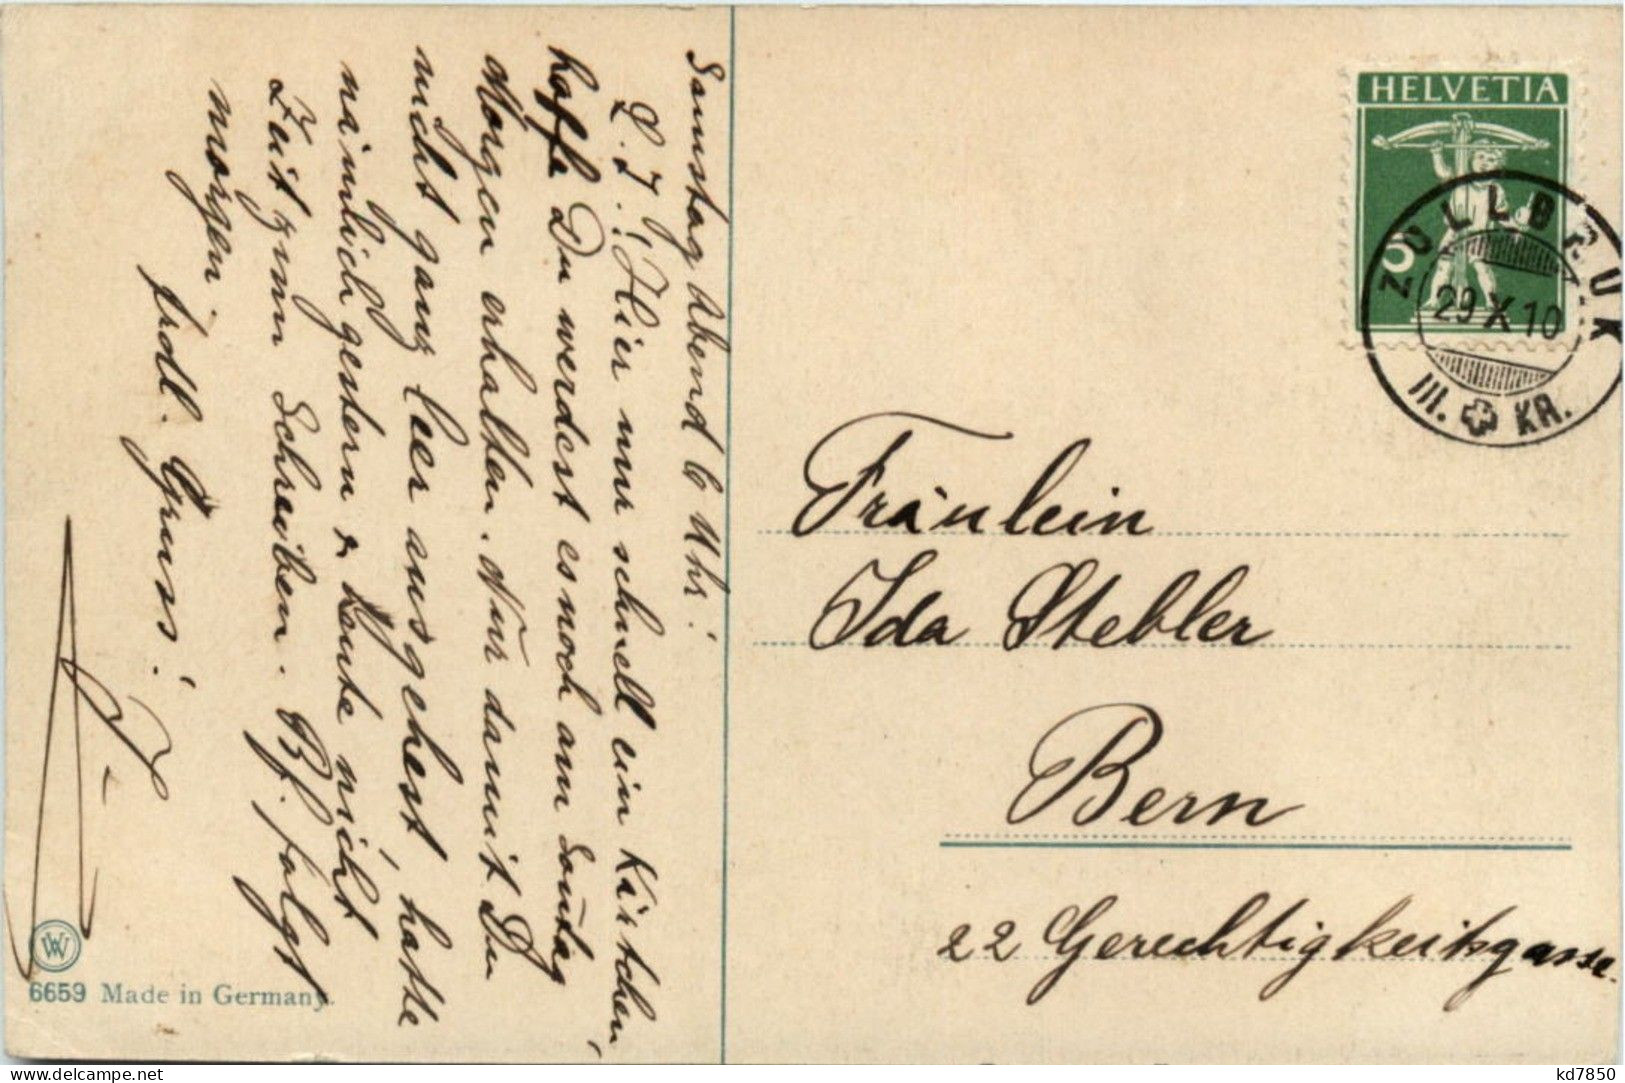 Samstag Abend 6 Uhr!
L. I.! Hier nur schnell ein Kärtchen,
hoffe Du werdest es noch am Sonntag
Morgen erhalten. Nur damit Du
nicht ganz leer ausgehest, hatte
nämlich gestern & heute nicht
Zeit zum Schreiben. Bf. folgt
morgen.
frdl. Gruss!
6659 Made in Germany.
HELVETIA
5
ZOLLBRUK
29 X 10
III. KR.
Fräulein
Ida Stebler
Bern
22 Gerechtigkeitsgasse.
www.delcampe.net
kd7850